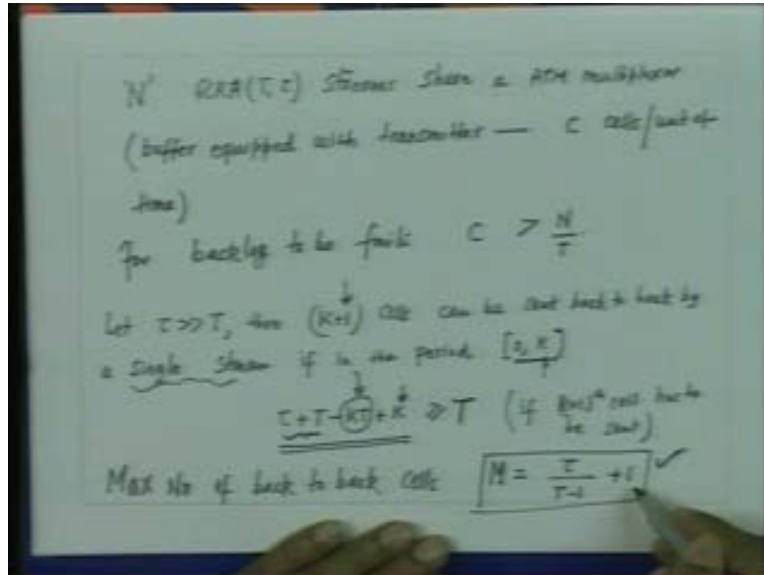 N GCRA(T, τ) Streams Share a ATM multiplexer
(buffer equipped with transmitter — C cells/unit of
time)
For backlog to be finite C > N/T
Let τ>>T, then (K+1) cells can be sent back to back by
a single stream if in the period [0, K]
τ+T-KT+K ≥ T (if (K+1)th cell has to
be sent)
Max No of back to back cells M = τ/(T-1) + 1 ✓